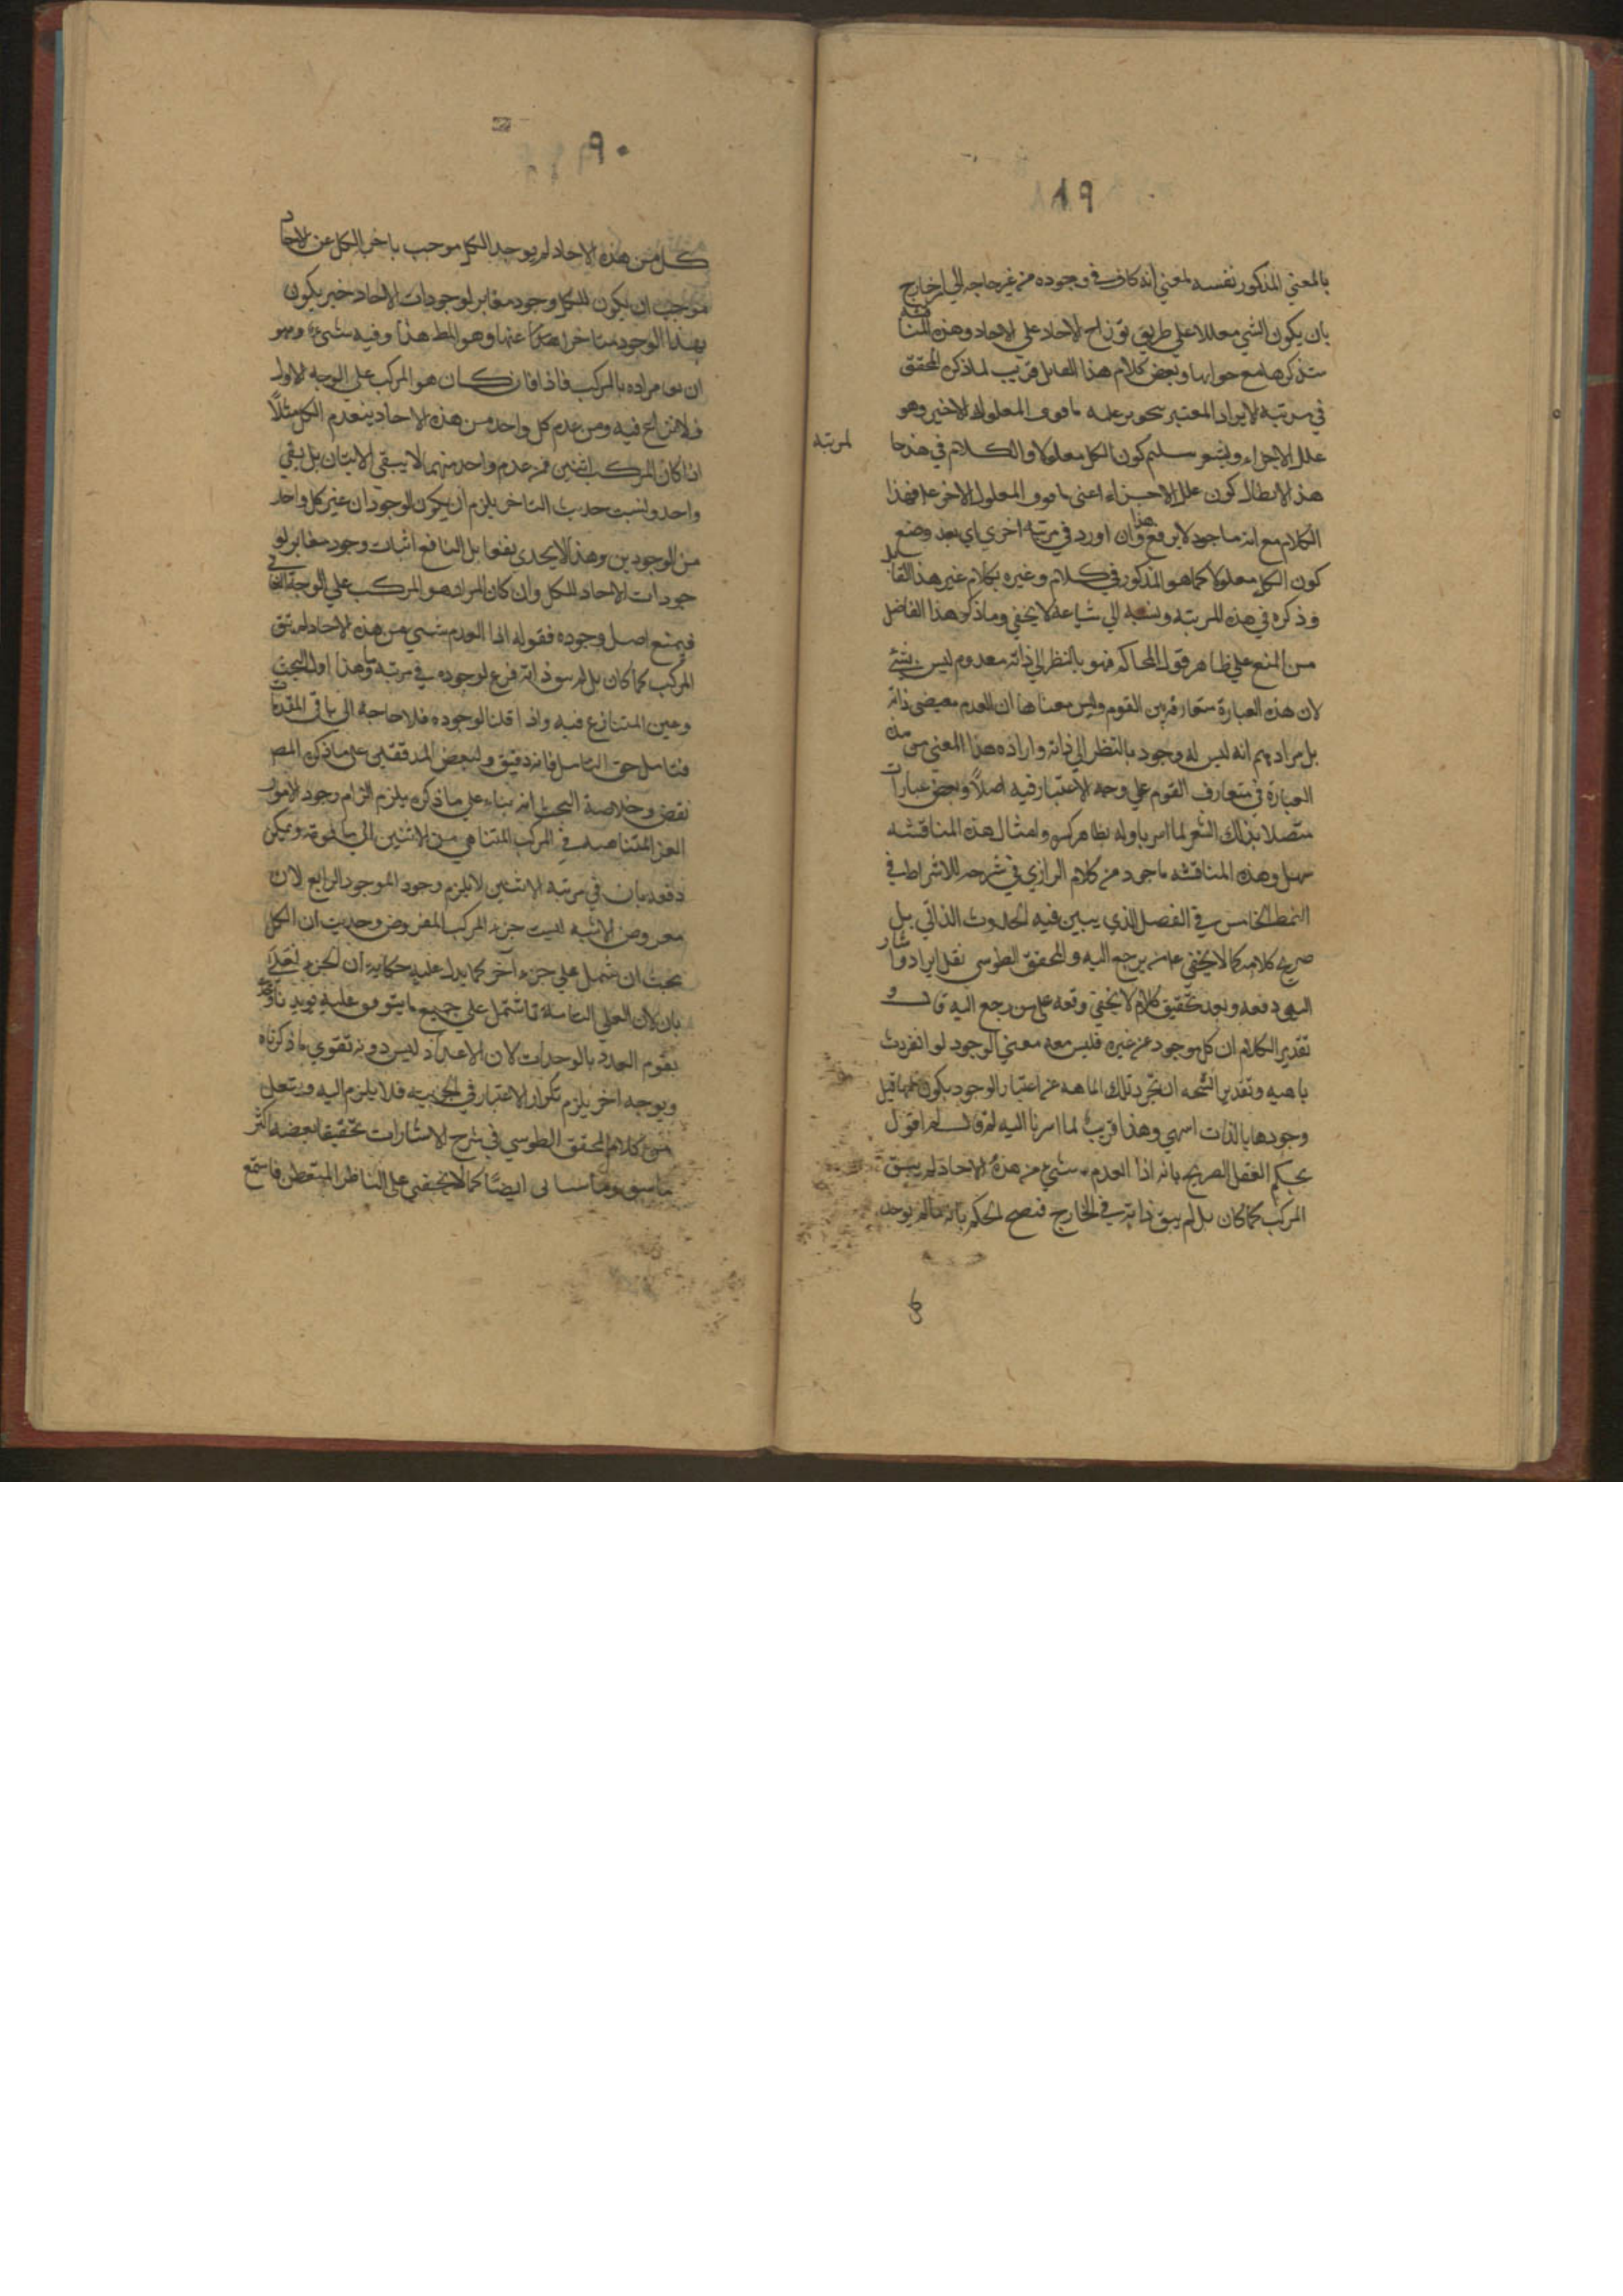 ٨٩
بالمعني المذكور نفسه لمعني انه كاف في وجوده من غير حاجه الي امر خارج
بان يكون الشي معللا علي طريق توزاح الاحاد علي الاحاد وهذه المناقشه
ستذكرها مع جوابها وبعض كلام هذا القايل قريب لما ذكره المحقق
في مرتبه الايراد المعتبر ما فوق المعلول الاخير وهو
علل الاجزاء كون الكل معلولا والكلام في هذه
لمرتبه
هذا الابطال كون علل الاجزاء اعني ما فوق المعلول الاخر فهذا
الكلام مع انه ماخود لا يرفع هذا وان اورد في مرتبه اخري اي بعد وضع
كون الكل معلولا كما هو المذكور في كلام وغيره بكلام غير هذا القايل
وذكره في هذه المرتبه الي لا يخفي وما ذكر هذا الفاضل
من المنع علي ظاهر قول المحاكم فهو بالنظر الي ذاته معدوم ليس بشئ
لان هذه العبارة متعارف بين القوم وليس معناها ان العدم ذاته
بل مرادهم انه ليس له وجود بالنظر الي ذاته وارادة هذا المعني من هذه
العبارة في متعارف القوم علي وجه لا اعتبار فيه اصلاً وبعض عبارات
متصلا بذلك وامثال هذه المناقشه
سهل وهذه المناقشه ماخود من كلام الرازي في شرحه للاشراط في
النمط الخامس في الفصل الذي يبين فيه الحدوث الذاتي بل
صريح كلامه كما لا يخفي علي من يرجع اليه والمحقق الطوسي نقل ايراد واشار
الي دفعه وبعد تحقيق كلام لا يخفي وقعه علي من رجع اليه قال و
تقدير الكلام ان كل موجود عن غيره فليس معه معني الوجود لو انفردت
ماهيه تلك الماهيه عن اعتبار الوجود يكون لها قبل
وجودها بالذات انتهي وهذا قريب لما اشرنا اليه ثم قال اقول
يحكم العقل الصريح بانه اذا انعدم شئ من هذه الاحاد لم يبق
المركب كما كان بل لم يبق ذاته في الخارج فنصح الحكم بانه ما لم يوجد
٩٠
كل من هذه الاحاد لم يوجد الكل موجب باخر الكل عن الاحاد
موجب ان يكون للكل وجود مغاير لوجودات الاحاد يكون
بهذا الوجود متاخرا عنها وهو المط هذا وفيه شئ وهو
ان مراده بالمركب فان كان هو المركب علي الوجه الاول
فلا نزاع فيه ومن عدم كل واحد من هذه الاحاد ينعدم الكل مثلاً
اذا كان المركب اثنين فمن عدم واحد منهما لا يبقي الاثنان بل بقي
واحد وليست حديث التاخر يلزم ان يكون الوجود ان غير كل واحد
من الوجودين وهذا لا يجدي نفعا بل النافع اثبات وجود مغاير لو
جودات الاحاد للكل وان كان المراد هو المركب علي الوجه الثاني
فيمنع اصل وجوده فقوله اذا انعدم شئ من هذه الاحاد لم يبق
المركب كما كان بل لم يبق ذاته فرع لوجوده في مرتبة ما وهذا اول البحث
وعين المتنازع فيه واذا قلنا لوجوده فلا حاجة الي باقي المقدمات
فتامل حق التامل فانه دقيق ولبعض المدققين علي ما ذكره المص
نقض وخلاصة البحث انه بناء علي ما ذكره يلزم الزام وجود الامور
الغير المتناهيه في المركب المتناهي من الاثنين الي ما فوقه ويمكن
دفعه بان في مرتبه الاثنين لا يلزم وجود الموجود الرابع لان
معروض الاثنينيه ليست جزء المركب المفروض وحديث ان الكل
يجب ان يشمل علي جزء آخر كما يدل عليه حكاية ان الجزء
بان لان العلي التامة ما تشتمل علي جميع ما يتوقف عليه
بقوم العدد بالوحدات لان الاعداد ليس دونه تقوي ما ذكرناه
وبوجه اخر يلزم تكرار الاعتبار في الجزئيه فلا يلزم
من كلام المحقق الطوسي في شرح الاشارات تحقيقا بعضه اكثر
ما سبق وما سياتي ايضًا كما لا يخفي علي الناظر المتفطن فاستمع